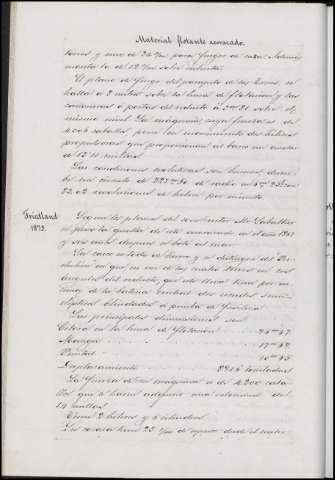 Material flotante acorazado.
tones y uno de 24 c/m para fuegos de caza
de 12 c/m sobre
El plano de fuego del parapeto de las torres, se
halla á 2 metros sobre la linea de flotacion y las
cañoneras ó portas del reducto á 3m 20 sobre el
mismo nivel. La máquina cuya fuerza es de
4006 caballos pone en movimiento dos hélices
propulsoras que proporcionan al barco un andar
de 12'11 millas.
Las condiciones evolutivas son buenas, descri-
be un circulo de de radio en con
22.02 revoluciones de hélice por minuto.
Friedland
1873.
Segun los planos del constructor Mr. Sabattier
se puso la quilla de este acorazado en el año 1865
y seis mas despues se botó al mar.
Su casco es todo de hierro y se distingue del "Ri-
chelieu" en que, en vez de las cuatro torres en los
ángulos del reducto, que este lleva tiene por en-
cima de la bateria central dos reductos semi-
elípticos blindados á prueba de fusileria.
Sus principales dimensiones son
Eslora en la linea de flotacion 96m 47
Manga 17m 62
Puntal 10m 95
Desplazamiento 8916 toneladas
La fuerza de su máquina es de 4200 caba-
llos que le hacen adquirir una velocidad de
14 millas.
Tiene 2 hélices y 6 cilindros.
Su coraza tiene 22 c/m de espesor desde el centro